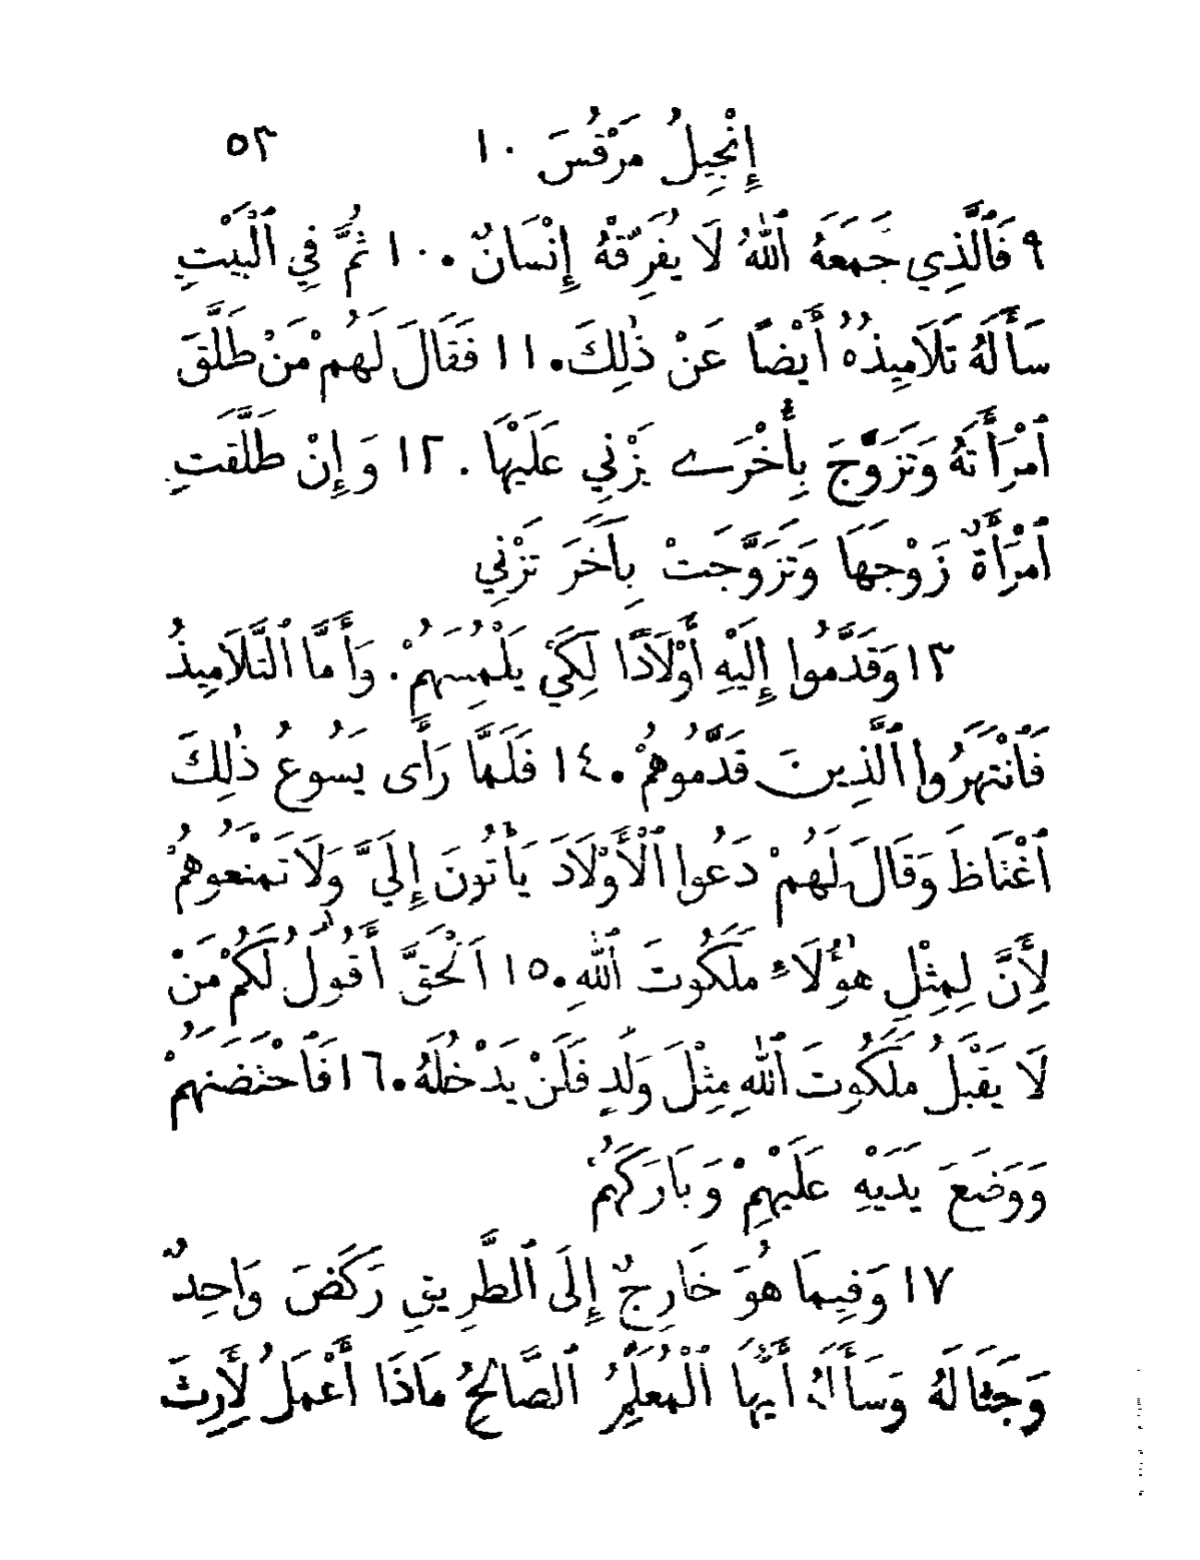 إِنْجِيلُ مَرْقُسَ ١٠ ٥٣
٩ فَٱلَّذِي جَمَعَهُ ٱللهُ لَا يُفَرِّقْهُ إِنْسَانٌ. ١٠ ثُمَّ فِي ٱلْبَيْتِ
سَأَلَهُ تَلَامِيذُهُ أَيْضًا عَنْ ذٰلِكَ. ١١ فَقَالَ لَهُمْ مَنْ طَلَّقَ
ٱمْرَأَتَهُ وَتَزَوَّجَ بِأُخْرَے يَزْنِي عَلَيْهَا. ١٢ وَإِنْ طَلَّقَتِ
ٱمْرَأَةٌ زَوْجَهَا وَتَزَوَّجَتْ بِآخَرَ تَزْنِي
١٣ وَقَدَّمُوا إِلَيْهِ أَوْلَادًا لِكَيْ يَلْمُِسَهُمْ. وَأَمَّا ٱلتَّلَامِيذُ
فَٱنْتَهَرُوا ٱلَّذِينَ قَدَّمُوهُمْ. ١٤ فَلَمَّا رَأَى يَسُوعُ ذٰلِكَ
ٱغْتَاظَ وَقَالَ لَهُمْ دَعُوا ٱلْأَوْلَادَ يَأْتُونَ إِلَيَّ وَلَا تَمْنَعُوهُمْ
لِأَنَّ لِمِثْلِ هٰؤُلَاءِ مَلَكُوتَ ٱللهِ. ١٥ اَلْحَقَّ أَقُولُ لَكُمْ مَنْ
لَا يَقْبَلُ مَلَكُوتَ ٱللهِ مِثْلَ وَلَدٍ فَلَنْ يَدْخُلَهُ. ١٦ فَٱحْتَضَنَهُمْ
وَوَضَعَ يَدَيْهِ عَلَيْهِمْ وَبَارَكَهُمْ
١٧ وَفِيمَا هُوَ خَارِجٌ إِلَى ٱلطَّرِيقِ رَكَضَ وَاحِدٌ
وَجَثَا لَهُ وَسَأَلَهُ أَيُّهَا ٱلْمُعَلِّمُ ٱلصَّالِحُ مَاذَا أَعْمَلُ لِأَرِثَ